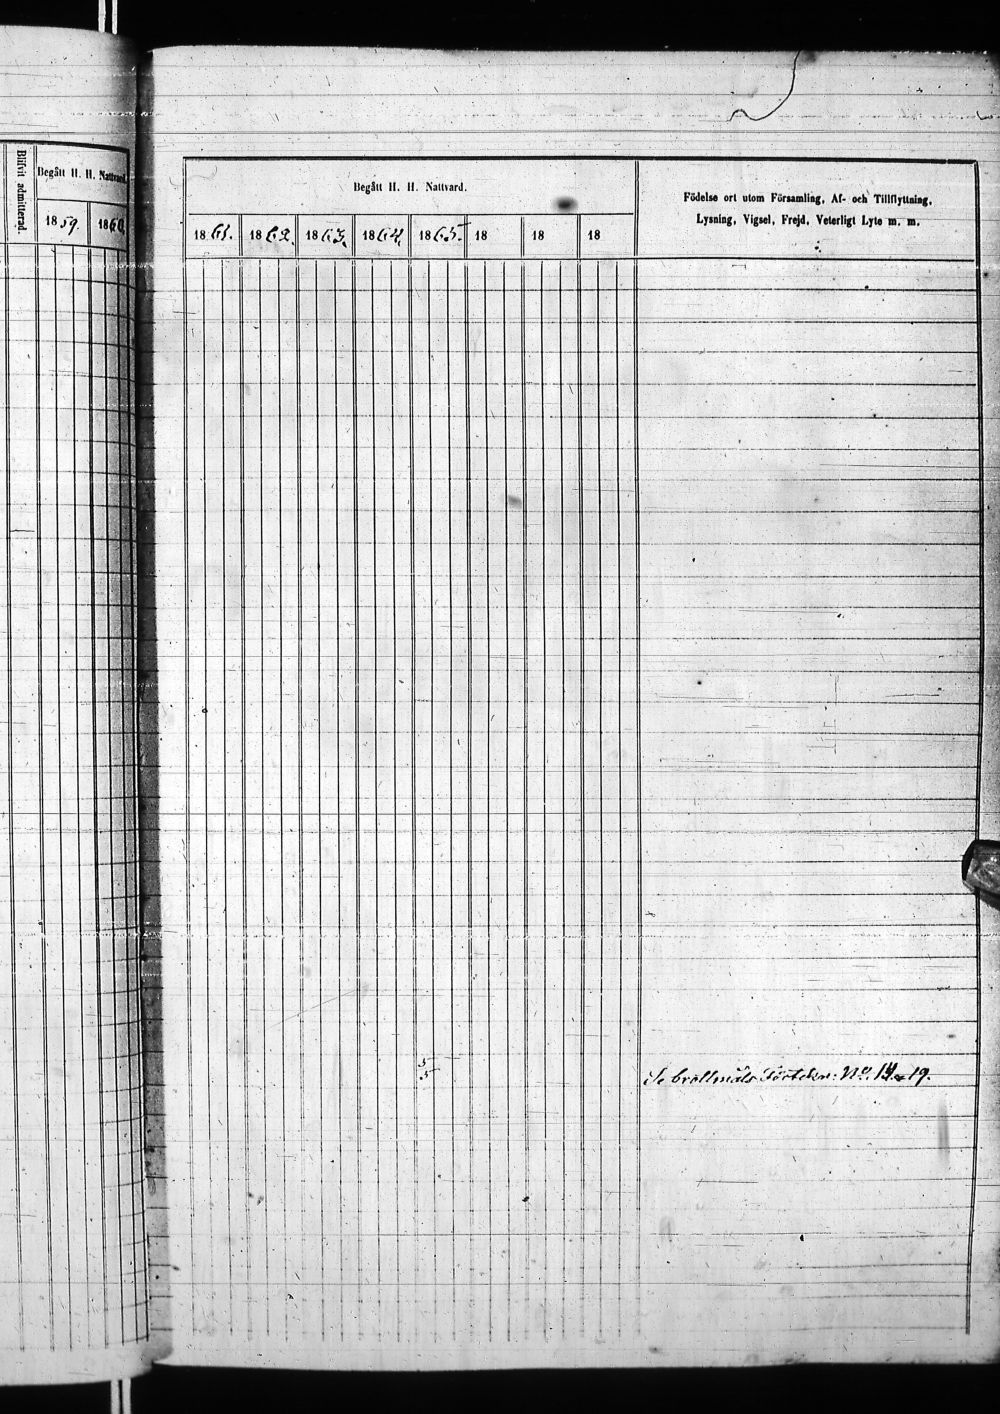 Blifvit admitterad.
Begått H. H. Nattvard.
1859. 1860.
Begått H. H. Nattvard.
1861. 1862. 1863. 1864. 1865. 18 18 18
Födelse ort utom Församling, Af- och Tillflyttning,
Lysning, Vigsel, Frejd, Veterligt Lyte m. m.
5
5
Se brottmåls Förtekn: No. 19.